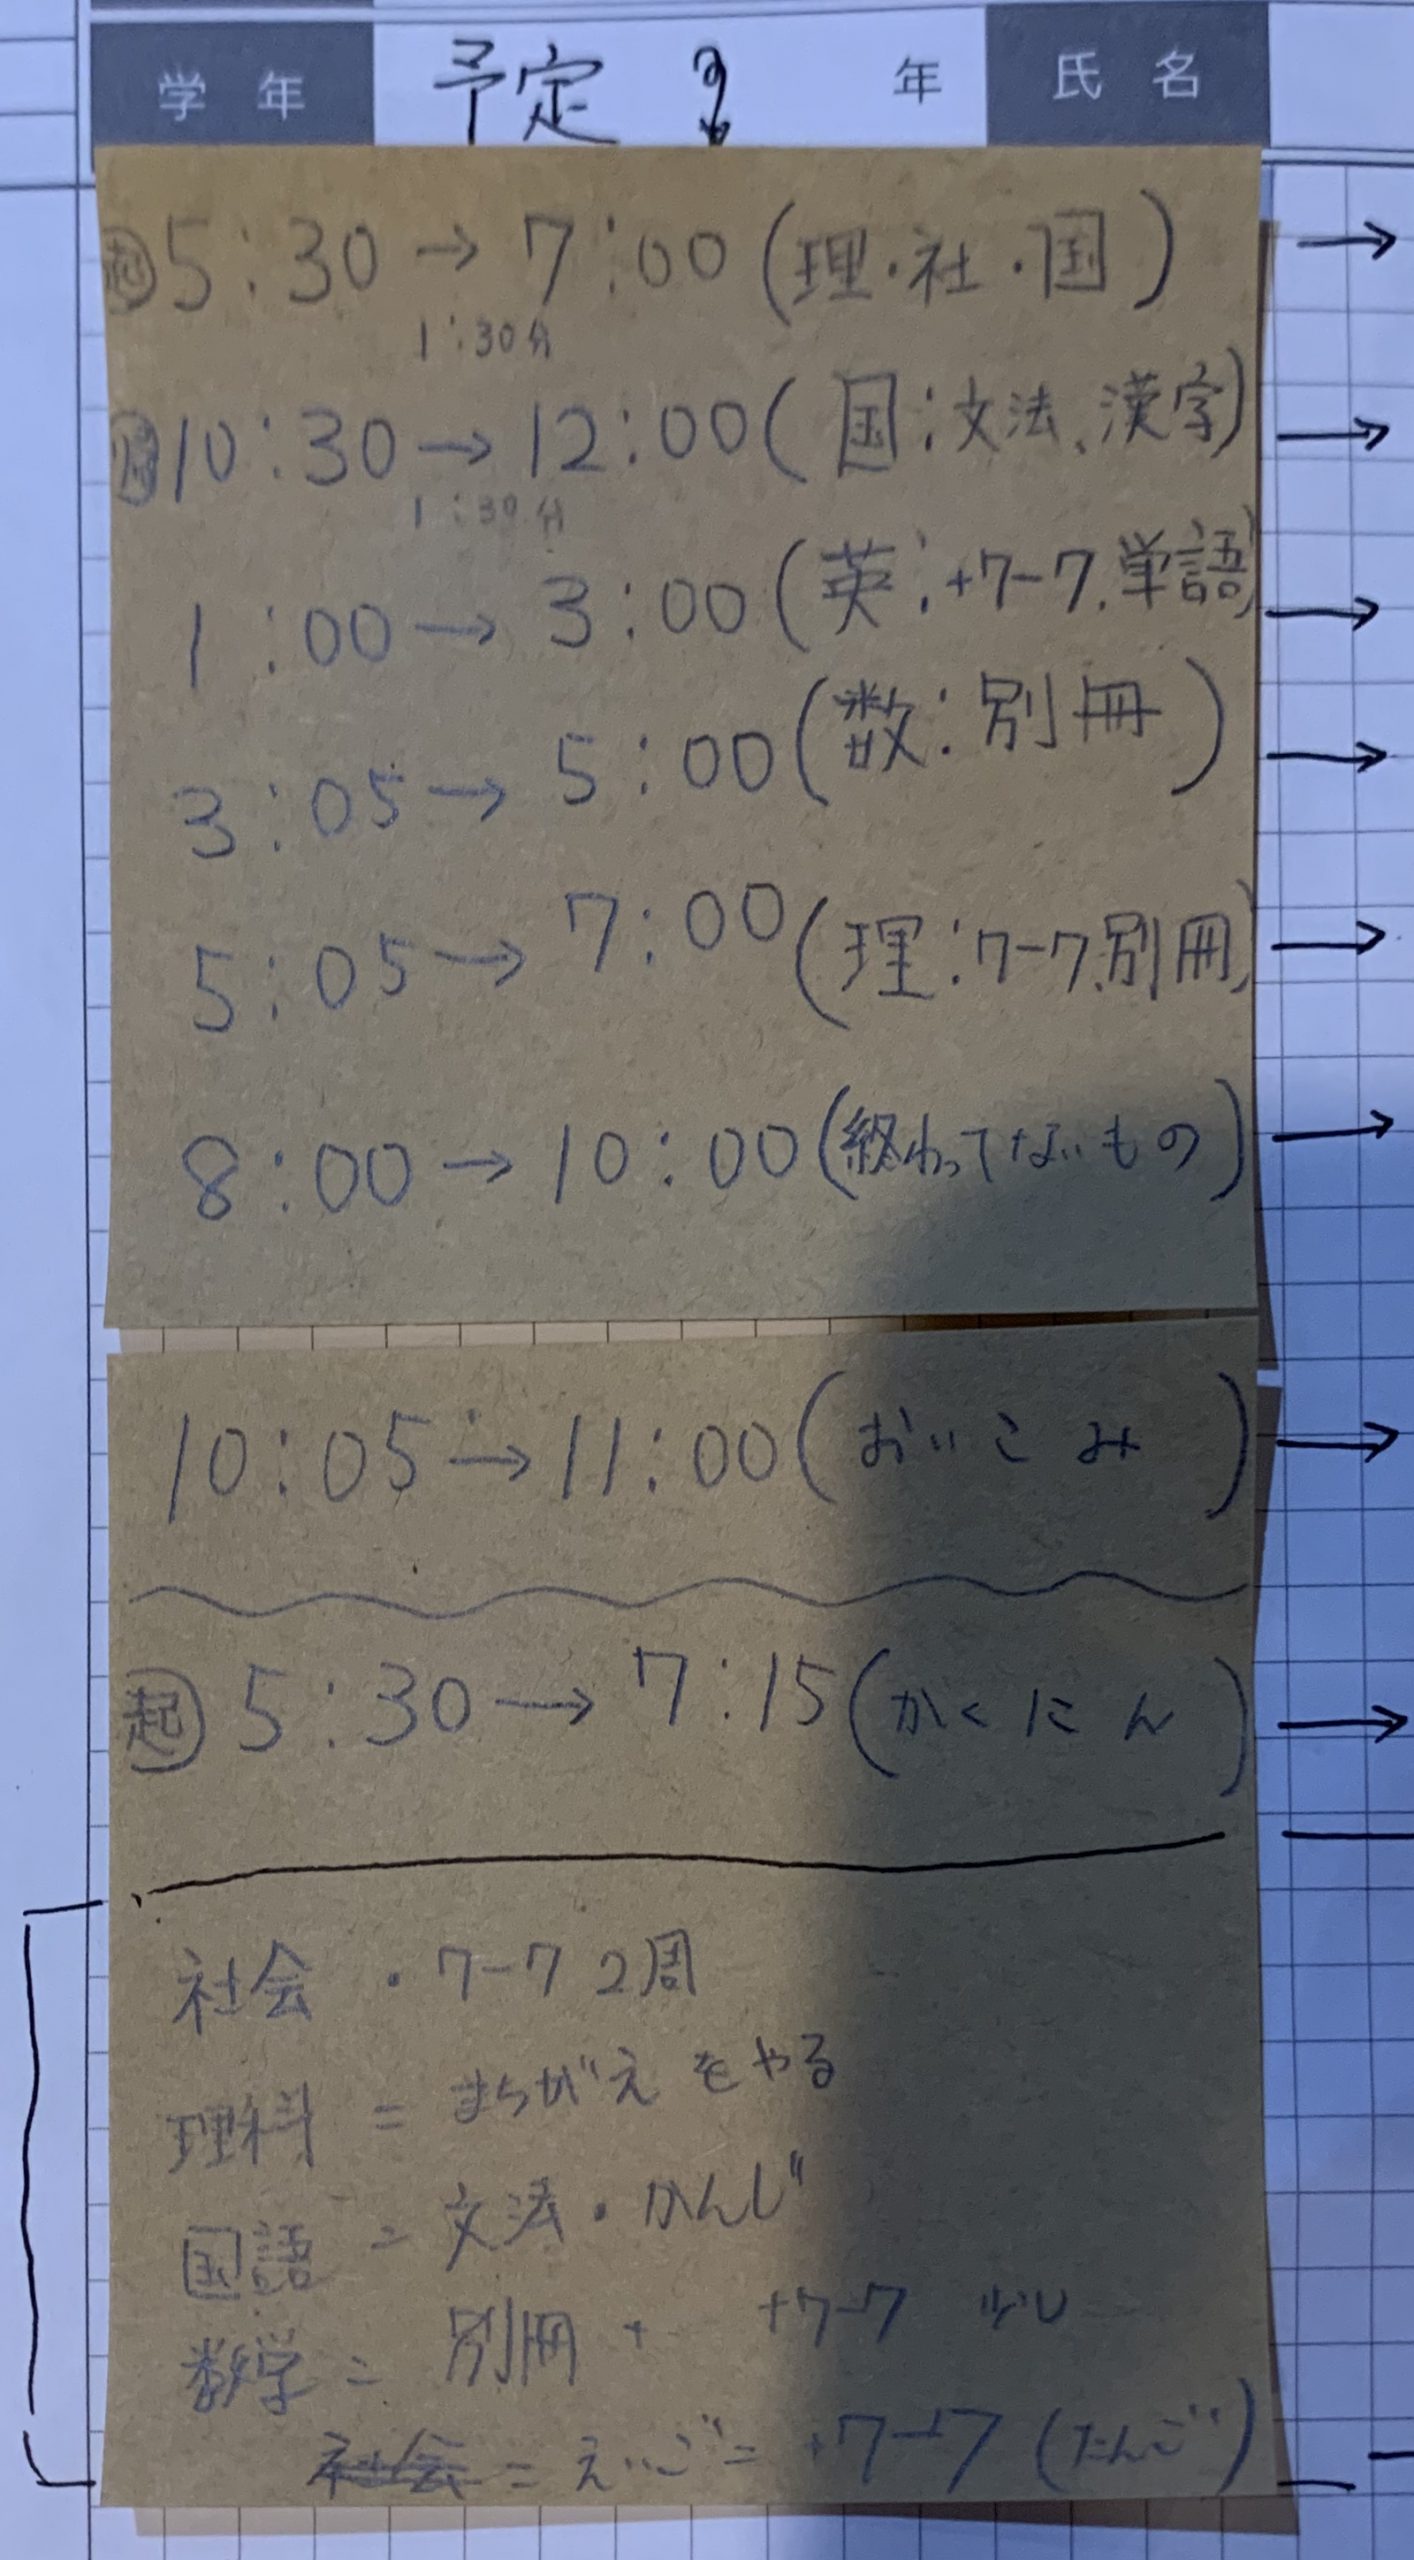 学年 予定 年 氏名
起 5:30 → 7:00 (理・社・国) →
1:30分
10:30 → 12:00 (国:文法、漢字) →
1:30分
1:00 → 3:00 (英:+ワーク、単語) →
3:05 → 5:00 (数:別冊) →
5:05 → 7:00 (理:ワーク、別冊) →
8:00 → 10:00 (終わってないもの) →
10:05 → 11:00 (おいこみ) →
起 5:30 → 7:15 (かくにん) →
社会・ワーク 2周
理科 = まちがえをやる
国語 = 文法・かんじ
数学 = 別冊 + +ワーク 少し
社会 = えいご = +ワーク (たんご)